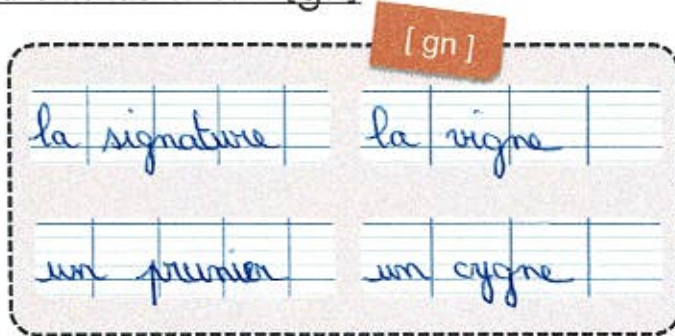 [ gn ]
la signature la vigne
un prunier un cygne